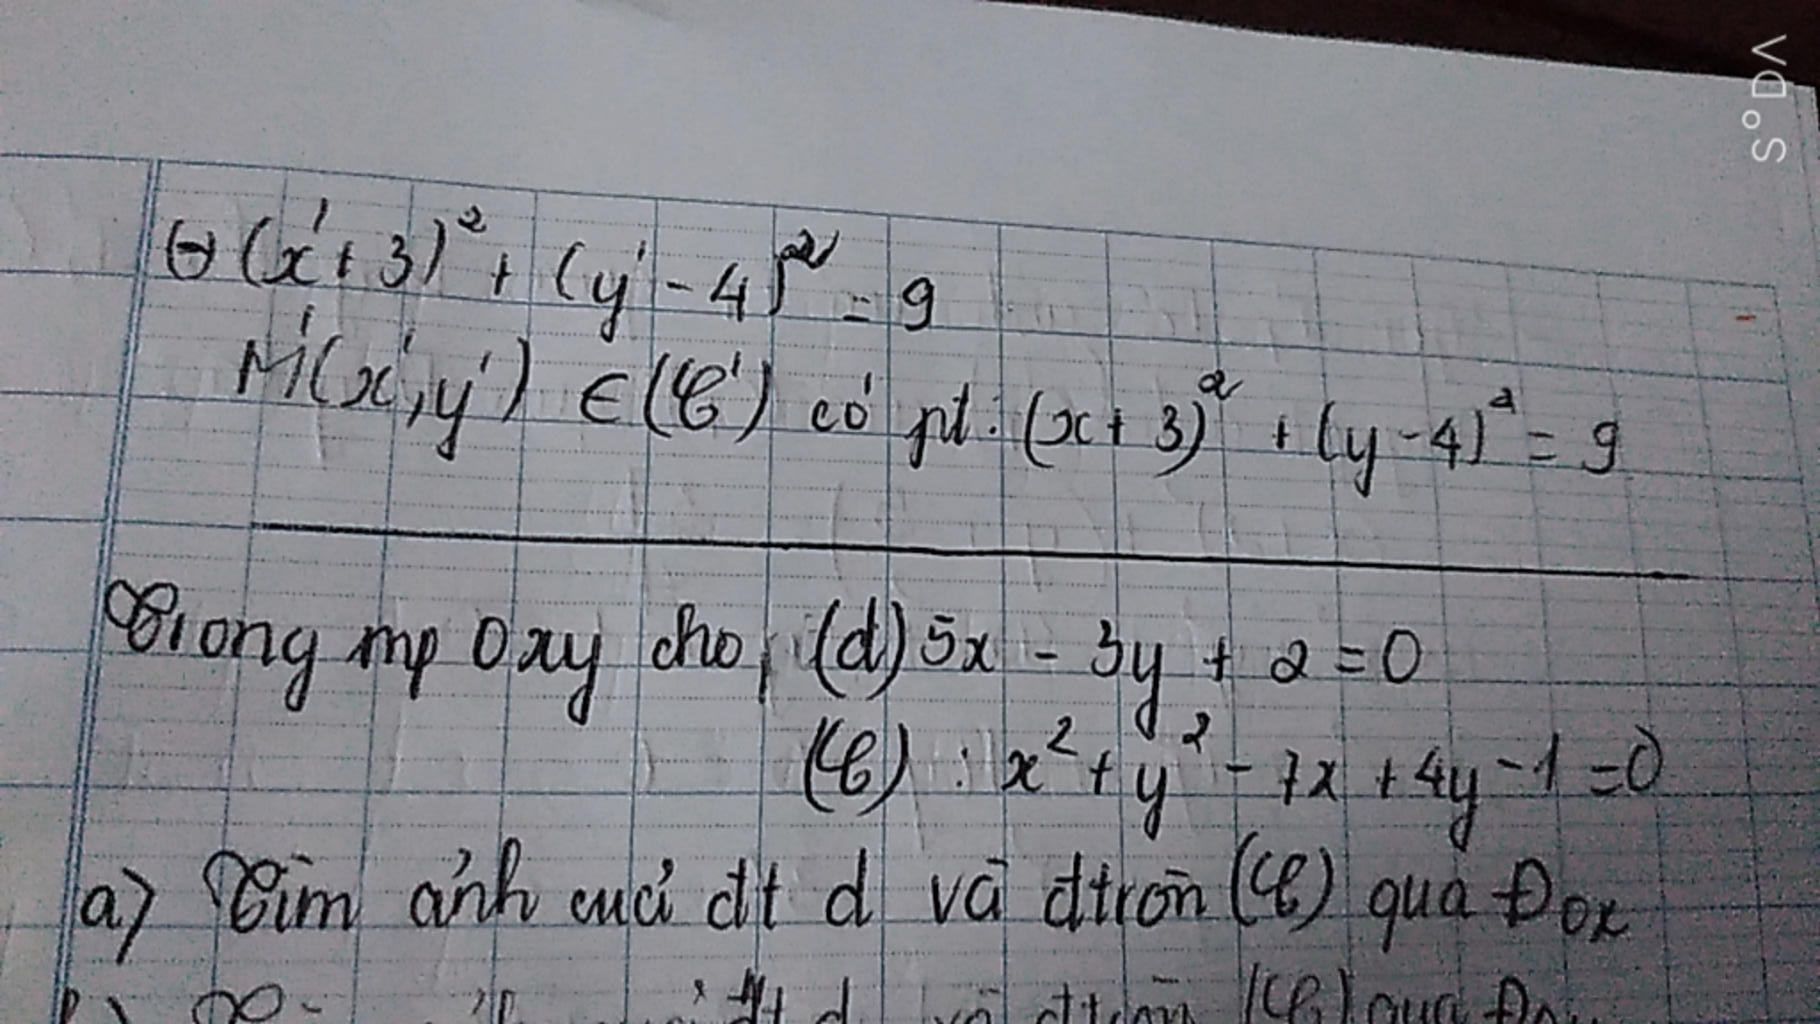 ⇔ (x'+3)² + (y'-4)² = 9
M'(x',y') ∈ (C') có pt: (x+3)² + (y-4)² = 9
Trong mp Oxy cho, (d) 5x - 3y + 2 = 0
(C) : x² + y² - 7x + 4y - 1 = 0
a) Tìm ảnh của đt d và đtròn (C) qua Đox
đt d và đtròn (C) qua